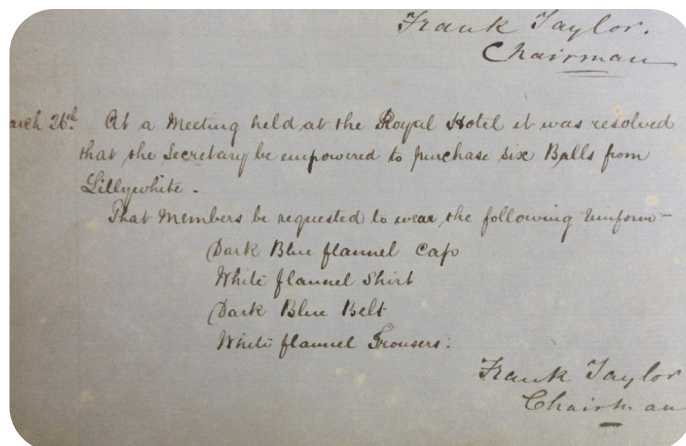 Frank Taylor.
Chairman
arch 26th. At a Meeting held at the Royal Hotel it was resolved
that the Secretary be empowered to purchase six Balls from
Lillywhite.
That Members be requested to wear the following Uniform—
Dark Blue flannel Cap
White flannel Shirt
Dark Blue Belt
White flannel Trousers.
Frank Taylor
Chairman